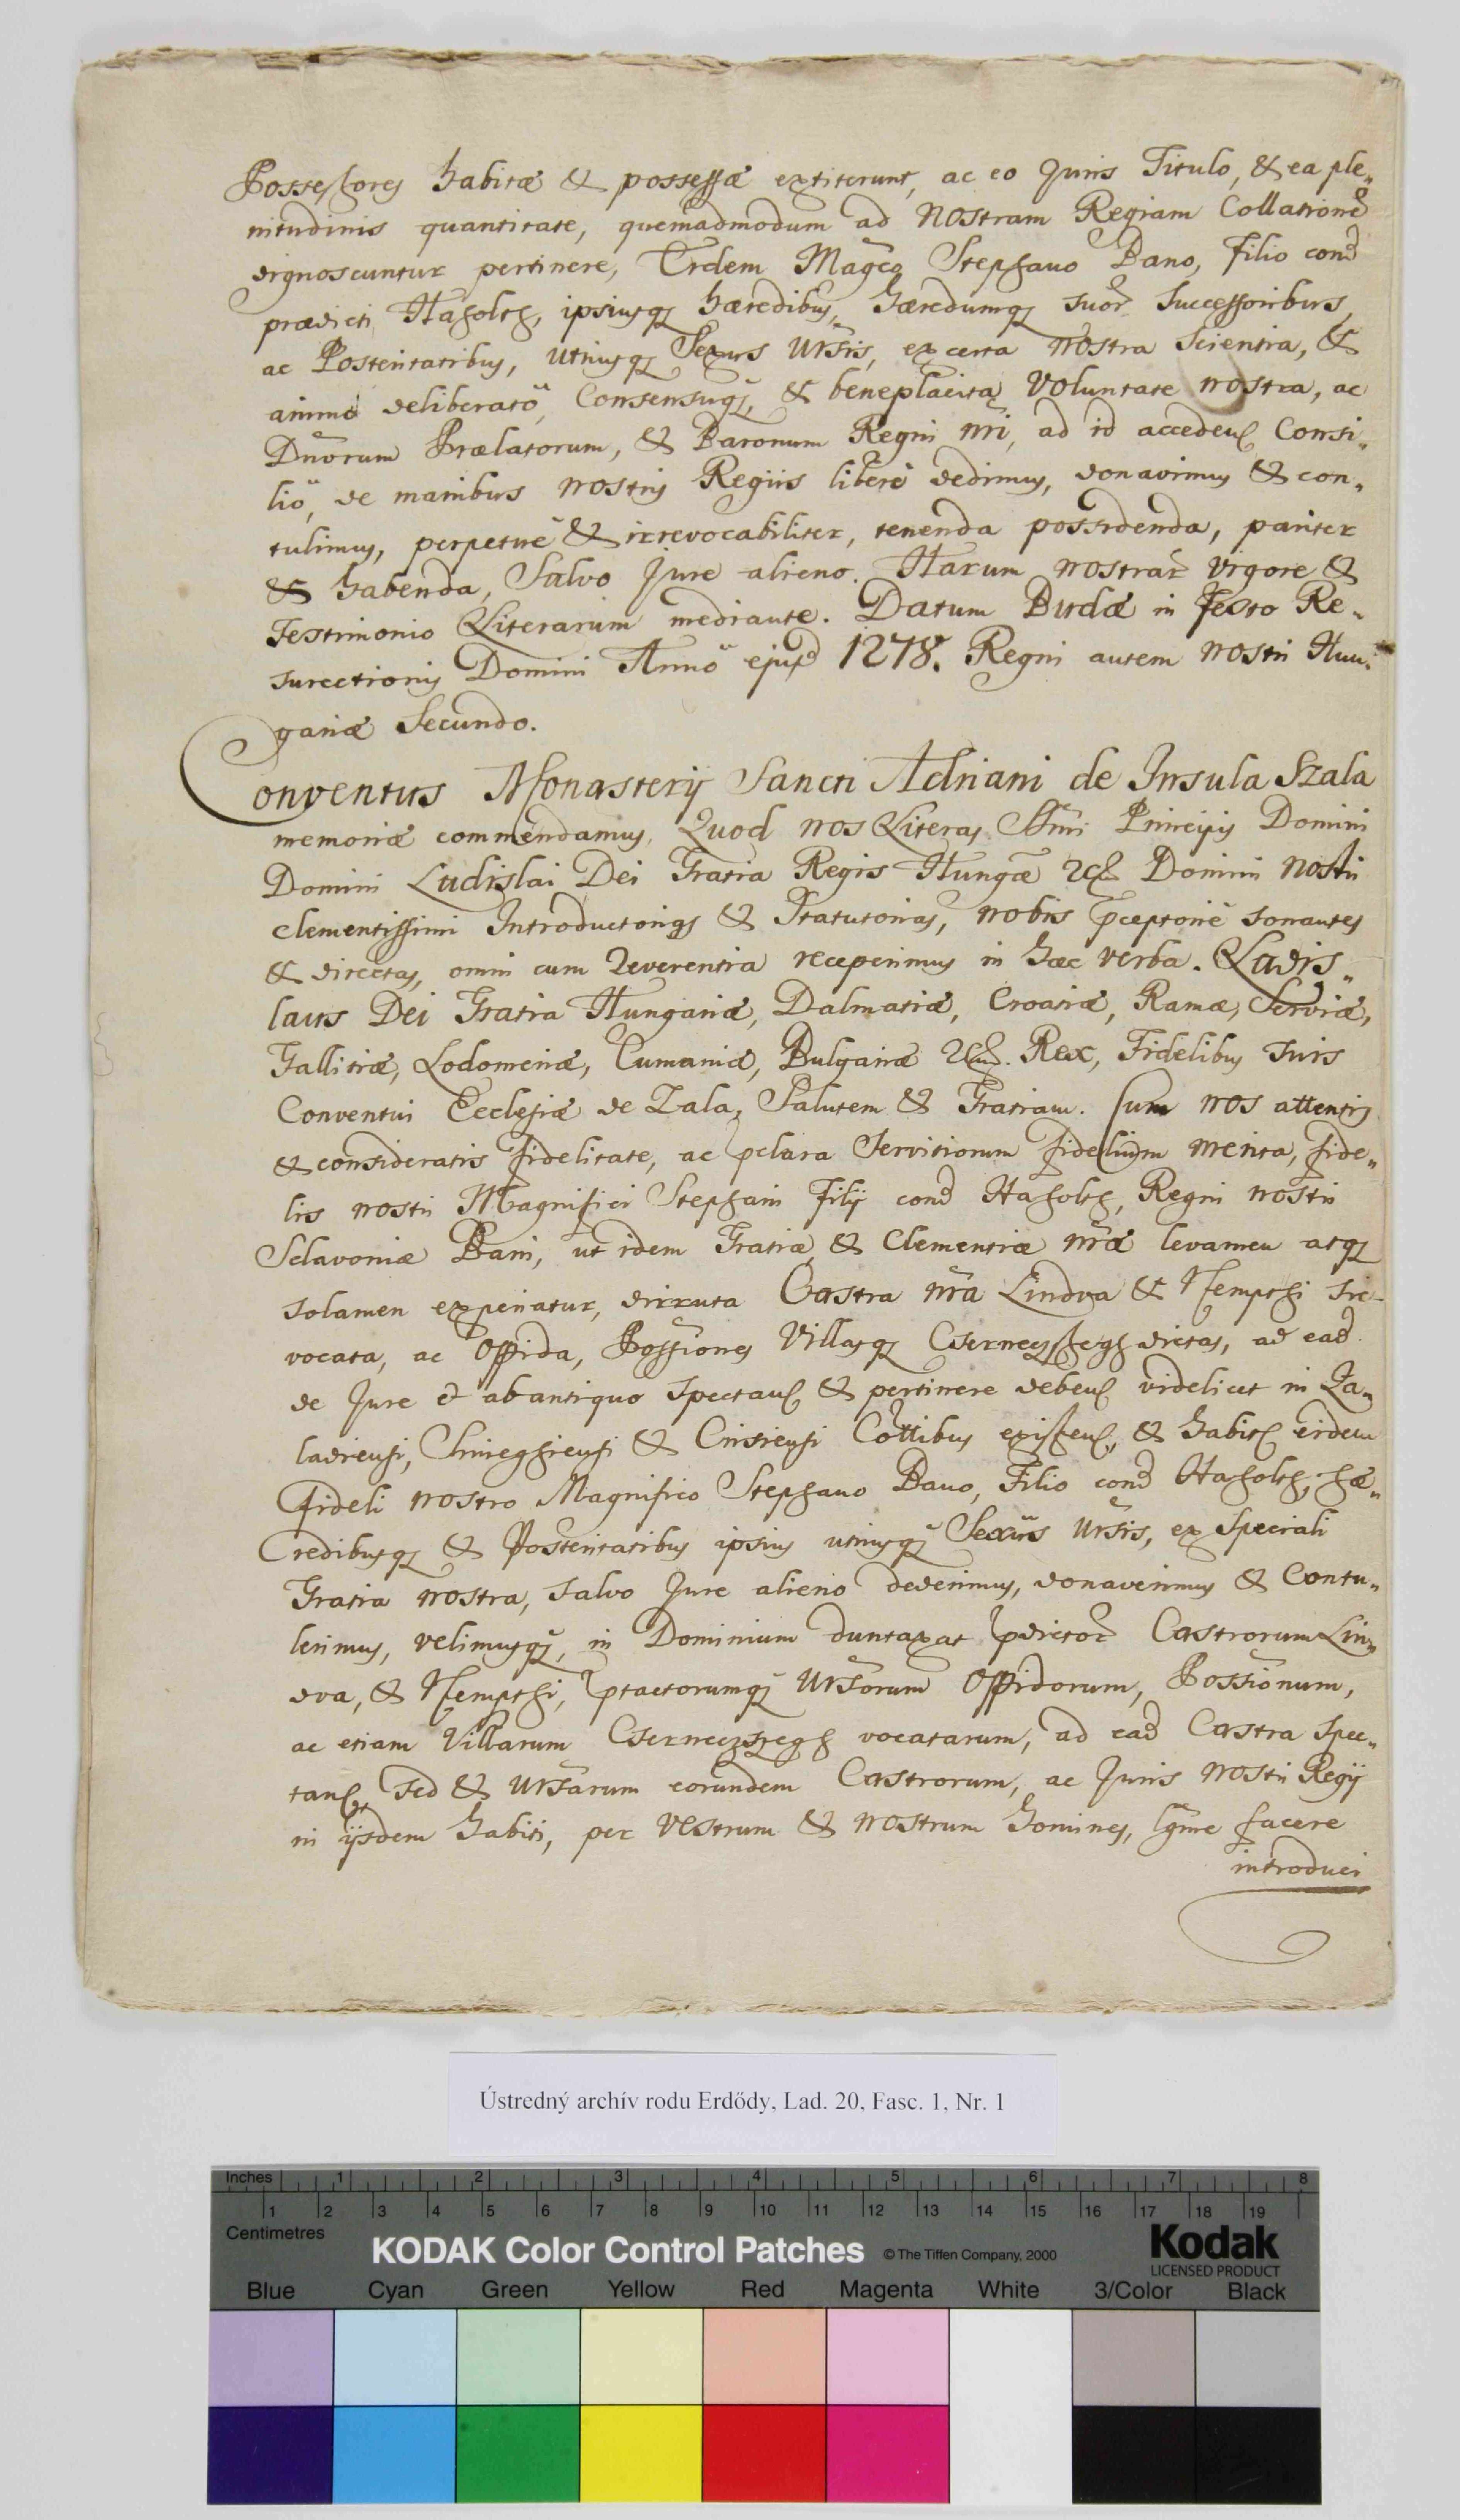 Possessores habitæ & possessæ extiterunt, ac eo Juris Titulo, & ea ple„
nitudinis quantitate, quemadmodum ad Nostram Regiam Collationē
dignoscuntur pertinere, Eidem Magco Stephano Bano, filio cond
prædicti Haholth, ipsiusq hæredibus, hæredumq suor Successoribus,
ac Posteritatibus, utriusq Sexus Ursis, ex certa nostra Scientia, &
animo deliberato, Consensuq, & beneplacita Voluntate nostra, ac
Dnorum Prælatorum, & Baronum Regni nri, ad id acceden Consi„
lio, de manibus nostris Regiis libere dedimus, donavimus & con„
tulimus, perpetue & irrevocabiliter, tenenda possidenda, pariter
& habenda, Salvo Jure alieno. Harum nostrar vigore &
Testimonio Literarum mediante. Datum Budæ in festo Re„
surectionis Domini Anno ejusd 1278. Regni autem nostri Hun„
gariæ Secundo.
Conventus Monasterij Sancti Adriani de Insula Szala
memoriæ commendamus, Quod nos Literas Principis Domini
Domini Ladislai Dei Gratia Regis Hungæ Domini nostri
clementissimi Introductorias & Statutorias, nobis pceptorie sonantes
& directas, omni cum Reverentia recepimus in hæc verba. Ladis„
laus Dei Gratia Hungariæ, Dalmatiæ, Croatiæ, Ramæ, Serviæ,
Gallitiæ, Lodomeriæ, Cumaniæ, Bulgariæ Rex, Fidelibus suis
Conventui Ecclesiæ de Zala, Salutem & Gratiam. Cum nos attentis
& consideratis fidelitate, ac pclara Servitiorum fidelium merita, fide„
lis nostri Magnifici Stephani filij cond Haholth, Regni nostri
Sclavoniæ Bani, ut idem Gratiæ & Clementiæ nræ levamen atq
solamen experiatur, dirruta Castra nra Lindva & Nempthi sic
vocata, ac Oppida, Possiones Villasq Cserneczszegh dictas, ad ead
de Jure et ab antiquo spectan & pertinere deben videlicet in Za„
ladiensi, Simeghiensi & Crisiensi Cottibus existen, & habit eidem
fideli nostro Magnifico Stephano Bano, Filio cond Haholth, hæ„
redibusq & Posteritatibus ipsius utriusq Sexus Ursis, ex Speciali
Gratia nostra, salvo Jure alieno dederimus, donaverimus & Contu„
lerimus, velimusq, in Dominium duntaxat pdictor Castrorum Lin„
dva, & Nempthi, ptactorumq Ursorum Oppidorum, Possionum,
ac etiam Villarum Cserneczszegh vocatarum, ad ead Castra spec„
tan, sed & Ursarum eorundem Castrorum, ac Juris nostri Regij
in ijsdem habiti, per vestrum & nostrum homines, lgme facere
introduci
Ústredný archív rodu Erdődy, Lad. 20, Fasc. 1, Nr. 1
Inches 1 2 3 4 5 6 7 8
1 2 3 4 5 6 7 8 9 10 11 12 13 14 15 16 17 18 19
Centimetres
KODAK Color Control Patches © The Tiffen Company, 2000 Kodak
LICENSED PRODUCT
Blue Cyan Green Yellow Red Magenta White 3/Color Black